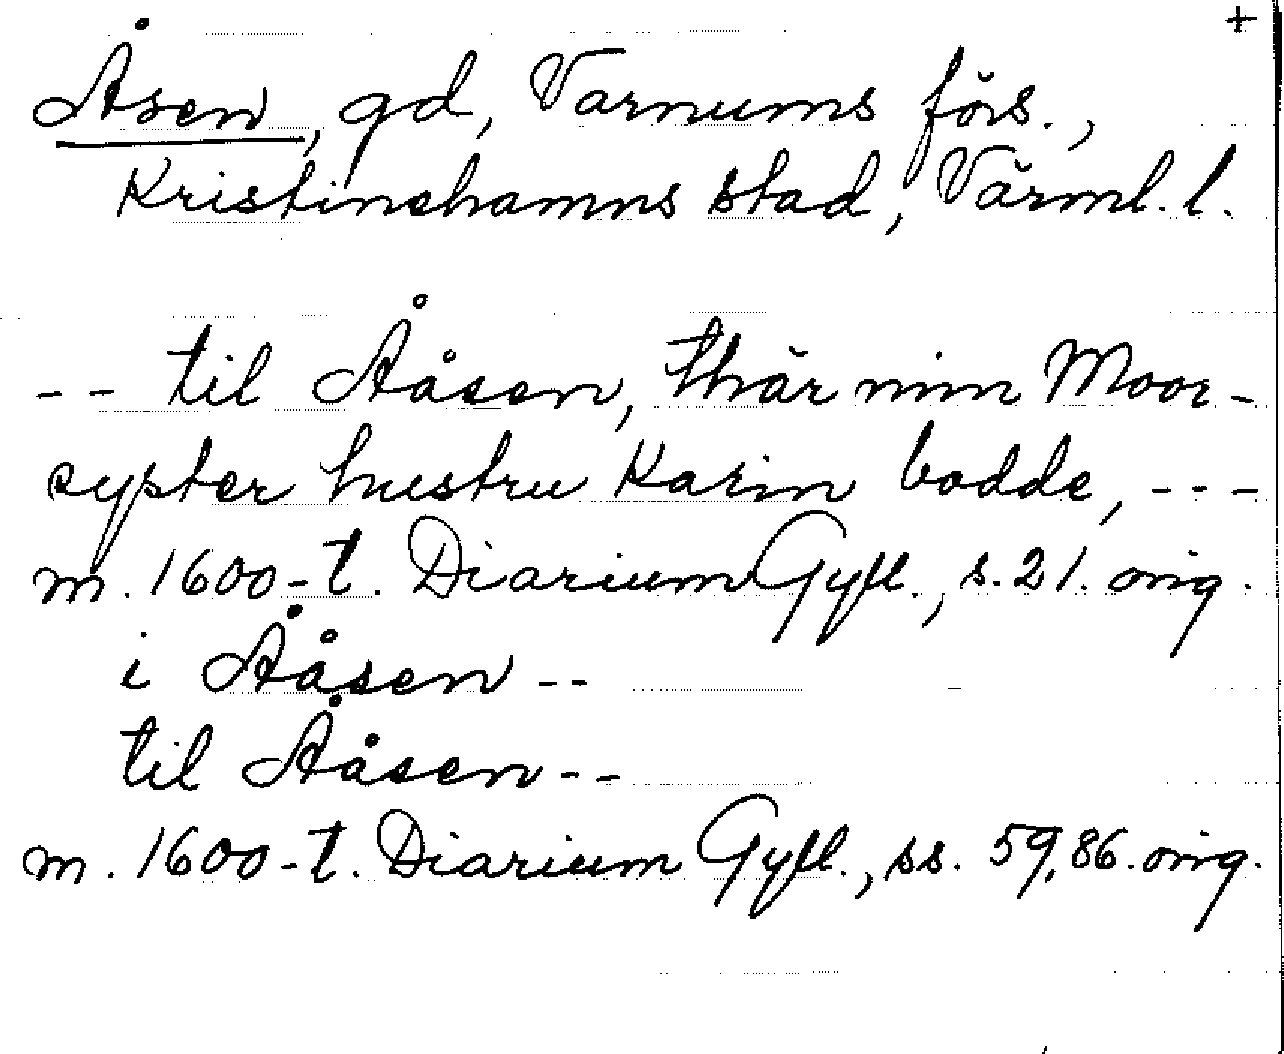 +
Åsen, gd, Varnums förs.,
Kristinehamns stad, Värml. l.
-- til Ååsen, thär min Moor-
syster hustru Karin bodde, ---
m. 1600-t. Diarium Gyll., s. 21. orig.
i Ååsen --
til Ååsen --
m. 1600-t. Diarium Gyll., ss. 59, 86. orig.